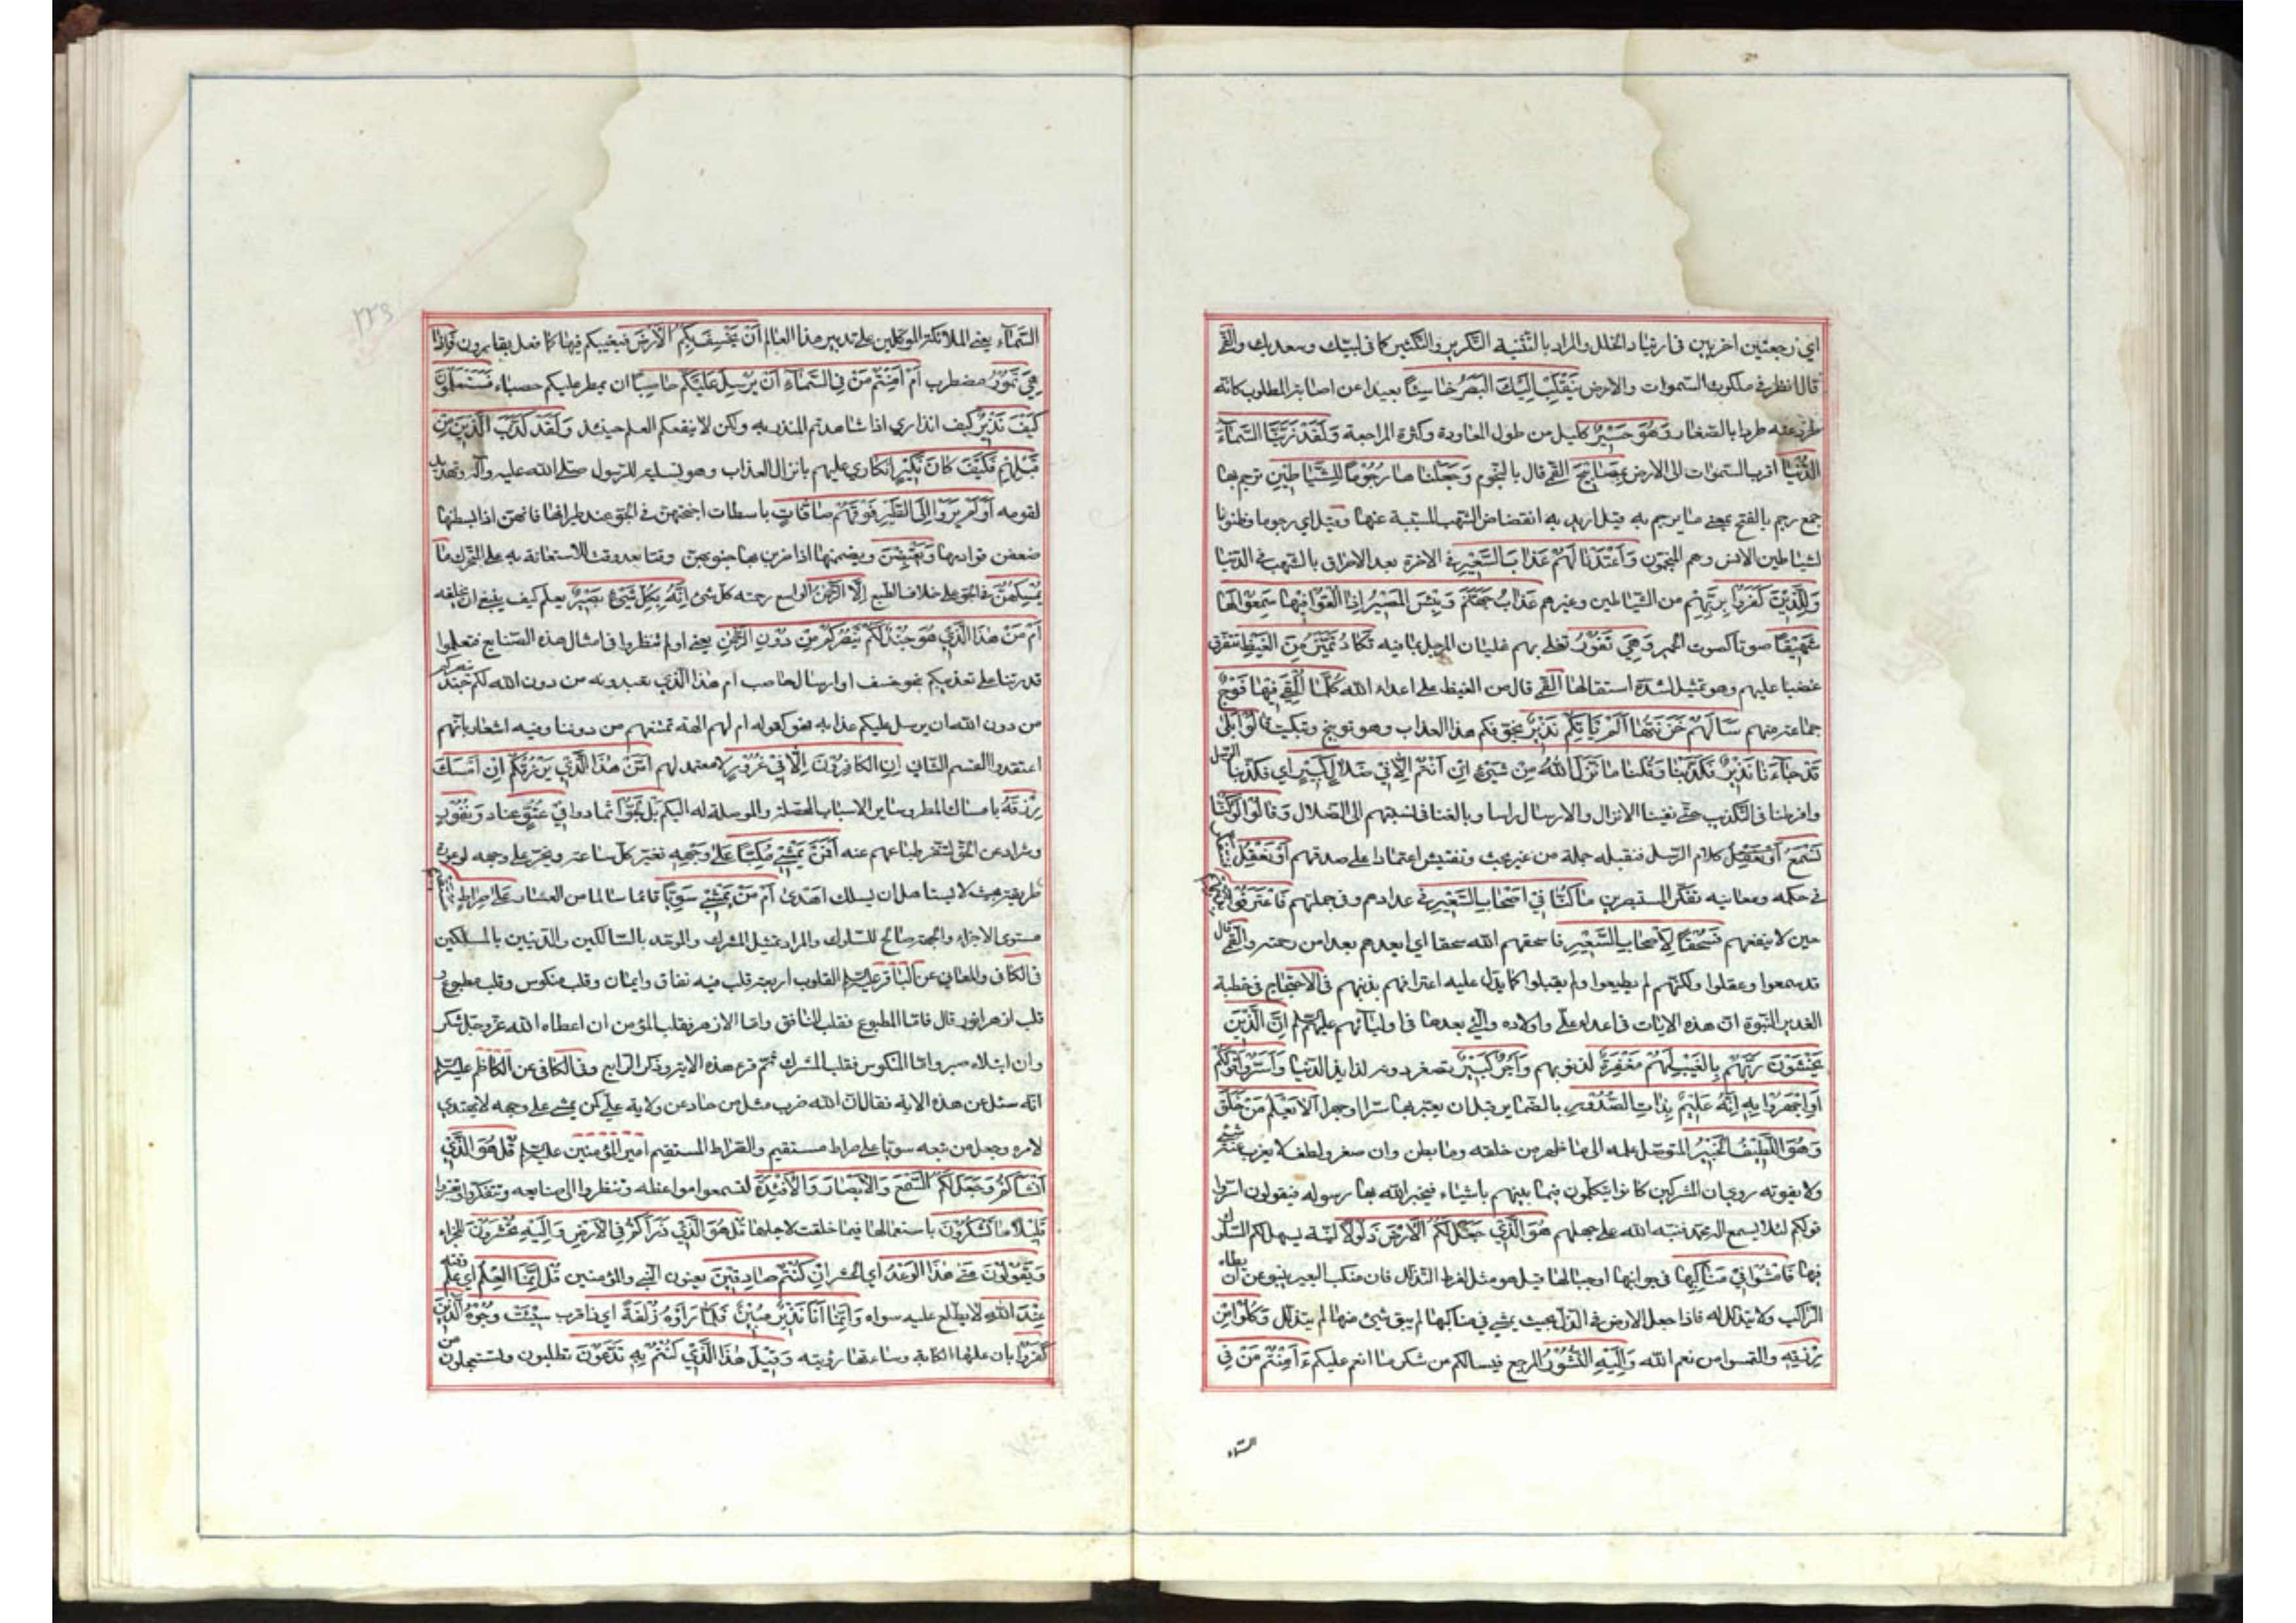 اي رجعتين اخريين في ارتياد الخلل والمراد بالتثنية التكرير والتكثير كما في لبيك وسعديك والقمي
قال انظر في ملكوت السموات والارض يَنْقَلِبْ اِلَيْكَ الْبَصَرُ خَاسِئًا بعيدا عن اصابة المطلوب كانه
طرد عنه طردا بالصغار وَهُوَ حَسِيرٌ كليل من طول المعاودة وكثرة المراجعة وَلَقَدْ زَيَّنَّا السَّمَآءَ
الدُّنْيَا اقرب السموات الى الارض بِمَصَابِيحَ القمي قال بالنجوم وَجَعَلْنَاهَا رُجُومًا لِلشَّيَاطِينِ ترجم بها
جمع رجم بالفتح بمعنى ما يرجم به قيل اريد به انقضاض الشهب المسببة عنها وقيل اي رجوما وظنونا
لشياطين الانس وهم المنجمون وَاَعْتَدْنَا لَهُمْ عَذَابَ السَّعِيرِ في الاخرة بعد الاحراق بالشهب في الدنيا
وَلِلَّذِينَ كَفَرُوا بِرَبِّهِمْ من الشياطين وغيرهم عَذَابُ جَهَنَّمَ وَبِئْسَ الْمَصِيرُ اِذَا اُلْقُوا فِيهَا سَمِعُوا لَهَا
شَهِيقًا صوتا كصوت الحمير وَهِيَ تَفُورُ تغلي بهم غليان المرجل بما فيه تَكَادُ تَمَيَّزُ مِنَ الْغَيْظِ تتفرق
غضبا عليهم وهو تمثيل لشدة اشتعالها القمي قال من الغيظ على اعداء الله كُلَّمَا اُلْقِيَ فِيهَا فَوْجٌ
جماعة منهم سَاَلَهُمْ خَزَنَتُهَا اَلَمْ يَاْتِكُمْ نَذِيرٌ يخوفكم هذا العذاب وهو توبيخ وتبكيت قَالُوا بَلَى
قَدْ جَاءَنَا نَذِيرٌ فَكَذَّبْنَا وَقُلْنَا مَا نَزَّلَ اللهُ مِنْ شَيْءٍ اِنْ اَنْتُمْ اِلَّا فِي ضَلَالٍ كَبِيرٍ اي فكذبنا الرسل
وافرطنا في التكذيب حتى نفينا الانزال والارسال راسا وبالغنا في نسبتهم الى الضلال وَقَالُوا لَوْ كُنَّا
نَسْمَعُ كلام الرسل فنقبله جملة من غير بحث وتفتيش اعتمادا على صدقهم اَوْ نَعْقِلُ
في حكمه ومعانيه تفكر المستبصرين مَا كُنَّا فِي اَصْحَابِ السَّعِيرِ في عدادهم وفي جملتهم فَاعْتَرَفُوا بِذَنْبِهِمْ
حين لا ينفعهم فَسُحْقًا لِاَصْحَابِ السَّعِيرِ فاسحقهم الله سحقا اي ابعدهم بعدا من رحمته والقمي قال
قد سمعوا وعقلوا ولكنهم لم يطيعوا ولم يقبلوا كما يدل عليه اعترافهم بذنبهم في الاحتجاج في خطبة
الغدير النبوة ان هذه الايات في اعداء علي واولاده والتي بعدها في اوليائهم عليهم السلم اِنَّ الَّذِينَ
يَخْشَوْنَ رَبَّهُمْ بِالْغَيْبِ لَهُمْ مَغْفِرَةٌ لذنوبهم وَاَجْرٌ كَبِيرٌ تصغر دونه لذايذ الدنيا وَاَسِرُّوا قَوْلَكُمْ
اَوِ اجْهَرُوا بِهِ اِنَّهُ عَلِيمٌ بِذَاتِ الصُّدُورِ بالضماير قبل ان يعبر بها سرا وجهرا اَلَا يَعْلَمُ مَنْ خَلَقَ
وَهُوَ اللَّطِيفُ الْخَبِيرُ المتوصل علمه الى ما ظهر من خلقه وما بطن وان صغر ولطف لا يعزب عنه شيء
ولا يفوته روي ان المشركين كانوا يتكلمون فيما بينهم باشياء فيخبر الله بها رسوله فيقولون اسروا
قولكم لئلا يسمع اله محمد فنبه الله على جهلهم هُوَ الَّذِي جَعَلَ لَكُمُ الْاَرْضَ ذَلُولًا لينة يسهل لكم السلوك
فيها فَامْشُوا فِي مَنَاكِبِهَا في جوانبها او جبالها قيل هو مثل لفرط التذلل فان منكب البعير ينبو عن ان يطاه
الراكب ولا يتذلل له فاذا جعل الارض في الذل بحيث يمشي في مناكبها لم يبق شيء منها لم يتذلل وَكُلُوا مِنْ
رِزْقِهِ والتمسوا من نعم الله وَاِلَيْهِ النُّشُورُ المرجع فيسالكم عن شكر ما انعم عليكم ءَاَمِنْتُمْ مَنْ فِي
السماء
٢٢٤
السَّمَآءِ يعني الملائكة الموكلين على تدبير هذا العالم اَنْ يَخْسِفَ بِكُمُ الْاَرْضَ فيغيبكم فيها كما فعل بقارون فَاِذَا
هِيَ تَمُورُ تضطرب اَمْ اَمِنْتُمْ مَنْ فِي السَّمَآءِ اَنْ يُرْسِلَ عَلَيْكُمْ حَاصِبًا ان يمطر عليكم حصباء فَسَتَعْلَمُونَ
كَيْفَ نَذِيرِ كيف انذاري اذا شاهدتم المنذر به ولكن لا ينفعكم العلم حينئذ وَلَقَدْ كَذَّبَ الَّذِينَ مِنْ
قَبْلِهِمْ فَكَيْفَ كَانَ نَكِيرِ انكاري عليهم بانزال العذاب وهو تسلية للرسول صلى الله عليه وآله وتهديد
لقومه اَوَلَمْ يَرَوْا اِلَى الطَّيْرِ فَوْقَهُمْ صَافَّاتٍ باسطات اجنحتهن في الجو عند طيرانها فانهن اذا بسطنها
صففن قوادمها وَيَقْبِضْنَ ويضممنها اذا ضربن بها جنوبهن وقتا بعد وقت للاستعانة به على التحرك مَا
يُمْسِكُهُنَّ في الجو على خلاف الطبع اِلَّا الرَّحْمَنُ الواسع رحمته كل شيء اِنَّهُ بِكُلِّ شَيْءٍ بَصِيرٌ يعلم كيف ينبغي ان يخلقه
اَمْ مَنْ هَذَا الَّذِي هُوَ جُنْدٌ لَكُمْ يَنْصُرُكُمْ مِنْ دُونِ الرَّحْمَنِ يعني اولم تنظروا في امثال هذه الصنايع فتعلموا
قدرتنا على تعذيبكم بنحو خسف او ارسال حاصب ام هذا الذي تعبدونه من دون الله لكم جند ينصركم
من دون الله ان يرسل عليكم عذابه فهو كقوله ام لهم الهة تمنعهم من دوننا وفيه اشعار بانهم
اعتقدوا القسم الثاني اِنِ الْكَافِرُونَ اِلَّا فِي غُرُورٍ لا معتمد لهم اَمَّنْ هَذَا الَّذِي يَرْزُقُكُمْ اِنْ اَمْسَكَ
رِزْقَهُ بامساك المطر وساير الاسباب المحصلة والموصلة له اليكم بَلْ لَجُّوا تمادوا فِي عُتُوٍّ عناد وَنُفُورٍ
وشراد عن الحق لتنفر طباعهم عنه اَفَمَنْ يَمْشِي مُكِبًّا عَلَى وَجْهِهِ يعثر كل ساعة ويخر على وجهه لوعورة
طريقته بحيث لا يستاهل ان يسلك اَهْدَى اَمْ مَنْ يَمْشِي سَوِيًّا قائما سالما من العثار عَلَى صِرَاطٍ مُسْتَقِيمٍ
مستوي الاجزاء والجهة صالح للسلوك والمراد تمثيل المشرك والموحد بالسالكين والدينين بالمسلكين
في الكافي والمعاني عن الباقر عليه السلم القلوب اربعة قلب فيه نفاق وايمان وقلب منكوس وقلب مطبوع و
قلب ازهر انور قال فاما المطبوع فقلب المنافق واما الازهر فقلب المؤمن ان اعطاه الله عز وجل شكر
وان ابتلاه صبر واما المنكوس فقلب المشرك ثم قرء هذه الاية وذكر الرابع وفي الكافي عن الكاظم عليه السلم
انه سئل عن هذه الاية فقال ان الله ضرب مثل من حاد عن ولاية علي كمن يمشي على وجهه لا يهتدي
لامره وجعل من تبعه سويا على صراط مستقيم والصراط المستقيم امير المؤمنين عليه السلم قُلْ هُوَ الَّذِي
اَنْشَاَكُمْ وَجَعَلَ لَكُمُ السَّمْعَ وَالْاَبْصَارَ وَالْاَفْئِدَةَ لتسمعوا مواعظه وتنظروا الى صنايعه وتتفكروا وتعتبروا
قَلِيلًا مَا تَشْكُرُونَ باستعمالها فيما خلقت لاجلها قُلْ هُوَ الَّذِي ذَرَاَكُمْ فِي الْاَرْضِ وَاِلَيْهِ تُحْشَرُونَ للجزاء
وَيَقُولُونَ مَتَى هَذَا الْوَعْدُ اي الحشر اِنْ كُنْتُمْ صَادِقِينَ يعنون النبي والمؤمنين قُلْ اِنَّمَا الْعِلْمُ اي علم وقته
عِنْدَ اللهِ لا يطلع عليه سواه وَاِنَّمَا اَنَا نَذِيرٌ مُبِينٌ فَلَمَّا رَاَوْهُ زُلْفَةً اي ذا قرب سِيئَتْ وُجُوهُ الَّذِينَ
كَفَرُوا بان علتها الكابة وساءتها رؤيته وَقِيلَ هَذَا الَّذِي كُنْتُمْ بِهِ تَدَّعُونَ تطلبون وتستعجلون من